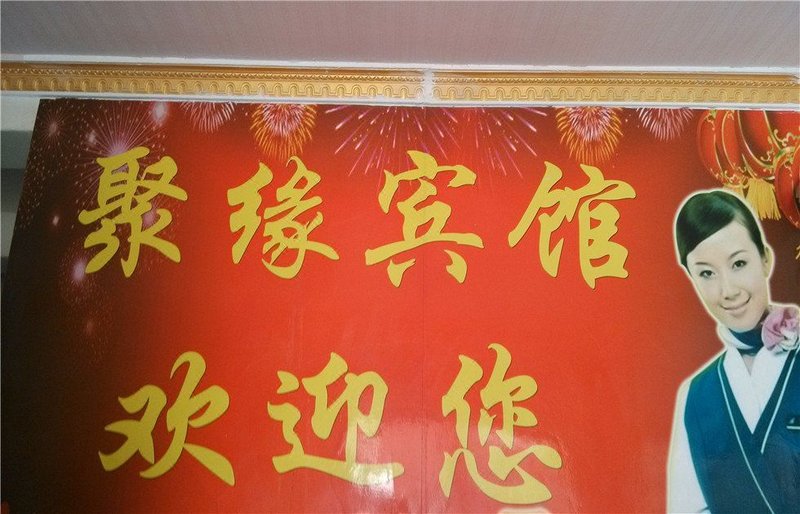 聚缘宾馆
欢迎您